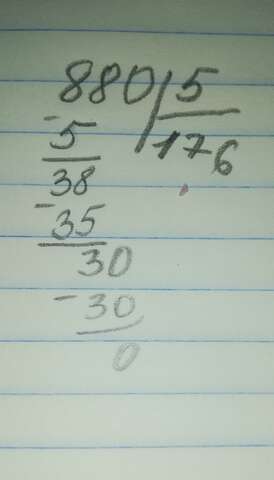 880 5
- 5 176
38
- 35
30
- 30
0